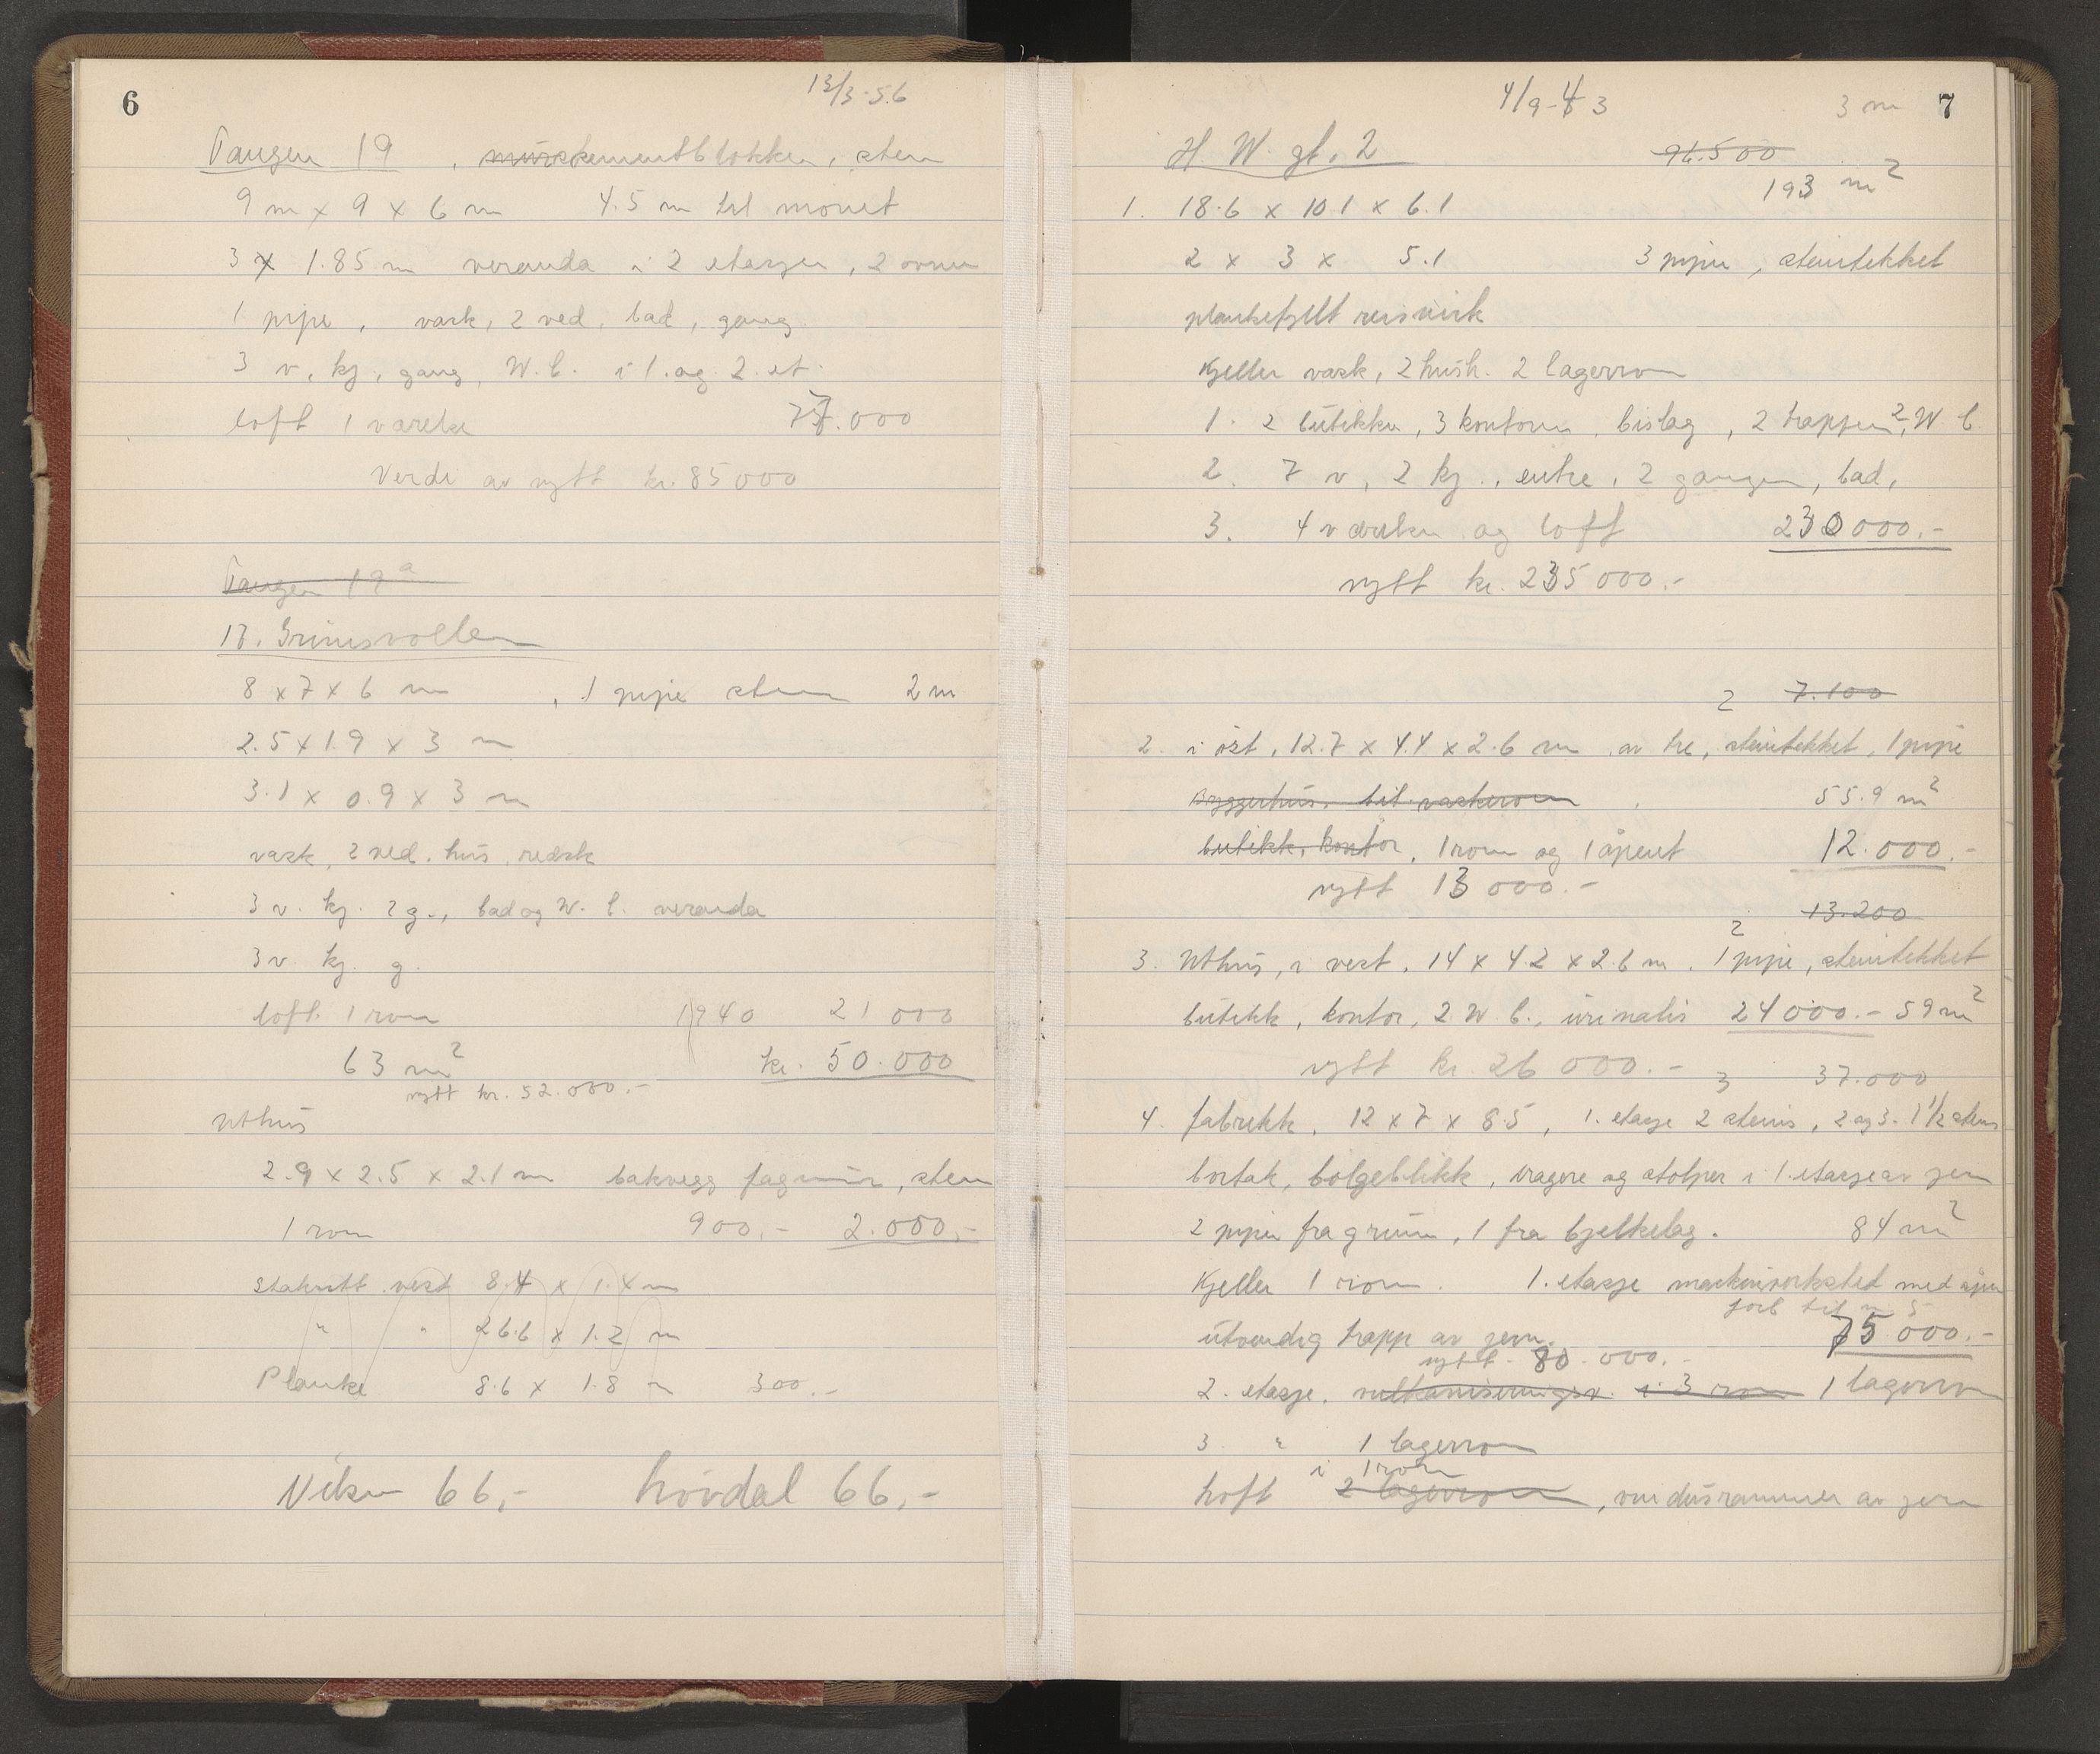 6
13/3-56
Tangen 19 , murs kementblokker, sten
9 m x 9 x 6 m 4.5 m til mønet
3 x 1.85 m veranda i 2 etasjer, 2 ovner
1 pipe, vask, 2 ved, bad, gang
3 v, kj, gang, W.C. i 1. og 2. et.
loft 1 værelse 77.000
Verdi av nytt kr. 85000
Tangen 19a
17. Grimsvollen
8 x 7 x 6 m , 1 pipe sten 2 m
2.5 x 1.9 x 3 m
3.1 x 0.9 x 3 m
vask, 2 ved. hus, redsk
3 v. kj. 2 g., bad og W.C. veranda
3 v. kj. g.
loft. 1 rom 1940 21 000
63 m² kr. 50.000
nytt kr. 52.000.-
Uthus
2.9 x 2.5 x 2.1 m bakvegg fagmur, sten
1 rom 900,- 2.000,-
Stakitt vest 8.4 x 1.4 m
" " 26.6 x 1.2 m
Planke 8.6 x 1.8 m 300.-
66,- hovdal 66,-
7
4/9-43 3 m
H. W. gt. 2 96.500
193 m²
1. 18.6 x 10.1 x 6.1
2 x 3 x 5.1 3 piper, steintekket
plankefyllt reisvirk
Kjeller vask, 2 hush. 2 lagerrom
1. 2 butikker, 3 kontorer, bislag, 2 trapper, 2 W C.
2. 7 v, 2 kj., entre, 2 ganger, bad,
3. 4 værelser og loft 230000.-
nytt kr. 235000.-
2 7.100
2. i øst, 12.7 x 4.4 x 2.6 m av tre, steintekket, 1 pipe
Bryggerhus, bil vaskerom 55.9 m²
butikk, kontor, 1 rom og 1 åpent 12.000.-
nytt 13 000.-
13.200
2
3. Uthus, i vest, 14 x 4.2 x 2.6 m. 1 pipe, steintekket
butikk, kontor, 2 W.C., urinalis 24000.- 59 m²
nytt kr. 26 000.- 3 37.000
4. fabrikk, 12 x 7 x 8.5, 1. etasje 2 steins, 2 og 3. 1 1/2 stens
bortak, bølgeblikk, dragere og stolper i 1. etasje av jern
2 piper fra grunn, 1 fra bjelkelag. 84 m²
Kjeller 1 rom. 1. etasje maskinverksted med åpen
forb til n 5
utvendig trapp av jern. 75 000.-
nytt - 80.000.-
2. etasje, vulkaniseringsv. i 3 rom 1 lagerrom
3 " 1 lagerrom
i 1 rom
Loft 2 lagerrom, vindusrammer av jern